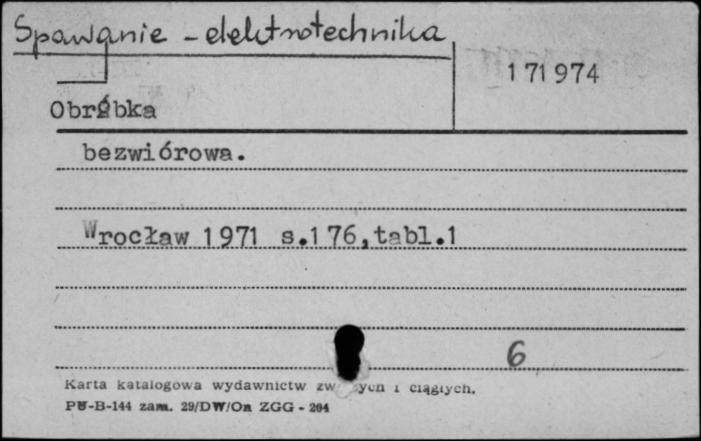 Spawanie - elektrotechnika
171974
Obróbka
bezwiórowa.
Wrocław 1971 s.176,tabl.1
6
Karta katalogowa wydawnictw i ciągłych.
PU-B-144 zam. 29/DW/On ZGG - 204